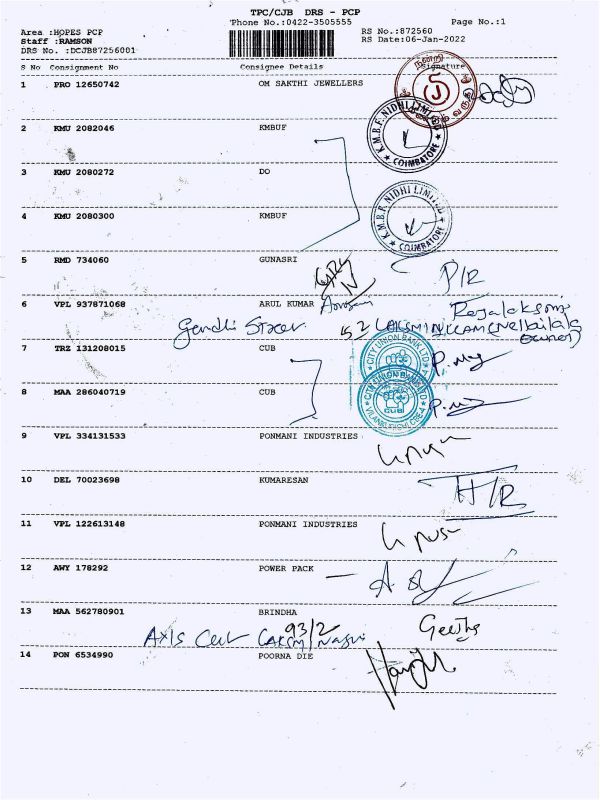 TPC/CJB DRS - PCP
Phone No.:0422-3505555 Page No.:1
Area :HOPES PCP RS No.:872560
Staff :RAMSON RS Date:06-Jan-2022
DRS No. :DCJB87256001
S No Consignment No Consignee Details Signature
1 PRO 12650742 OM SAKTHI JEWELLERS
நன்றி
வருக
2 KMU 2082046 KMBUF
K.M.B.F. NIDHI LIMITED
★ COIMBATORE ★
3 KMU 2080272 DO
4 KMU 2080300 KMBUF
K.M.B.F. NIDHI LIMITED
★ COIMBATORE ★
5 RMD 734060 GUNASRI P/R
6 VPL 937871068 ARUL KUMAR
7 TRZ 131208015 CUB
CITY UNION BANK LTD
8 MAA 286040719 CUB
CITY UNION BANK LTD
CUB
9 VPL 334131533 PONMANI INDUSTRIES
10 DEL 70023698 KUMARESAN H/R
11 VPL 122613148 PONMANI INDUSTRIES
12 AWY 178292 POWER PACK
13 MAA 562780901 BRINDHA
93/2
14 PON 6534990 POORNA DIE